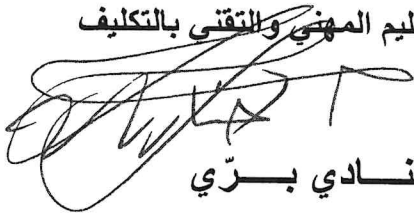 ليم المهني والتقني بالتكليف
نادي بري